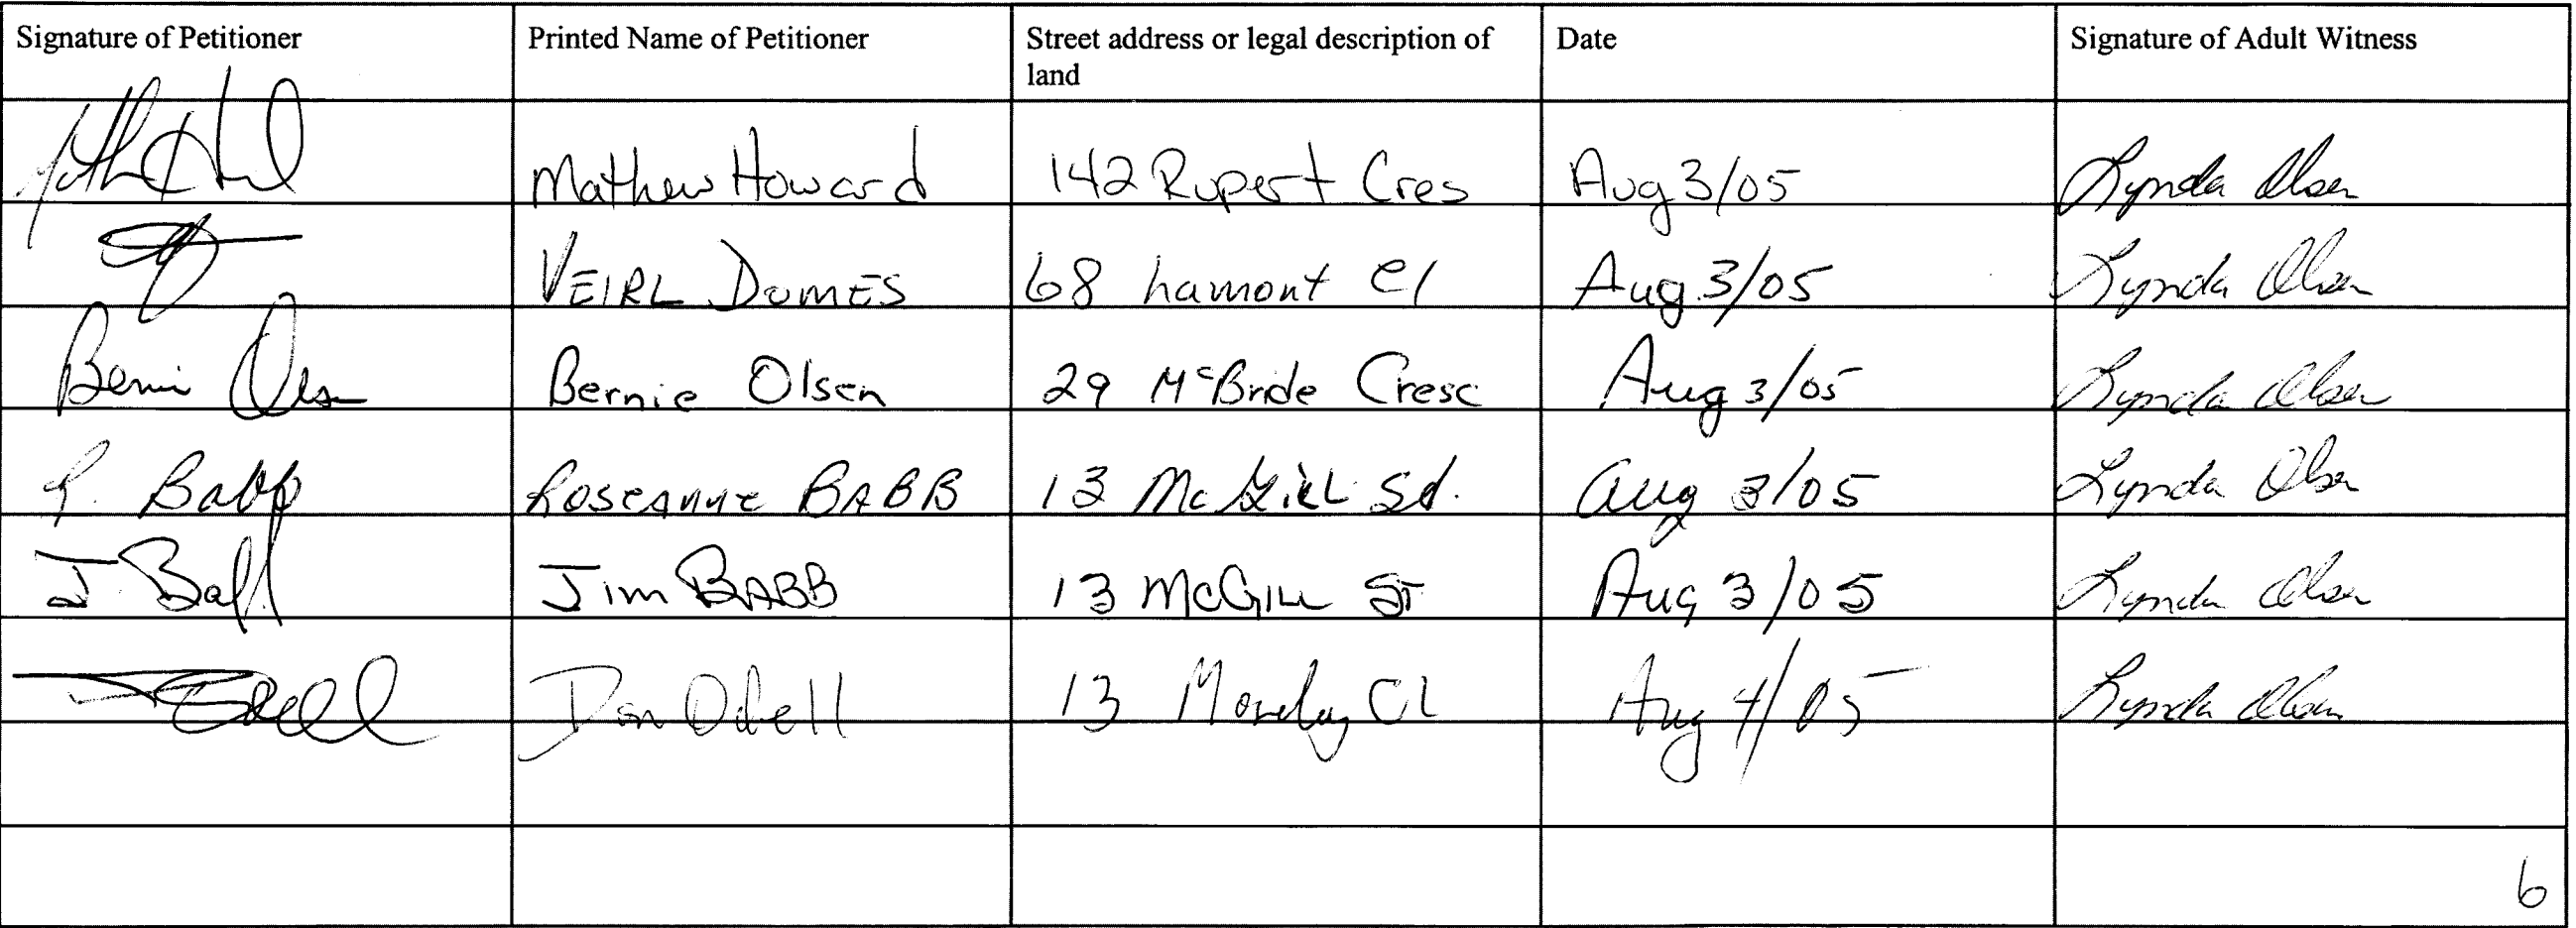 Signature of Petitioner Printed Name of Petitioner Street address or legal description of land Date Signature of Adult Witness
Mathew Howard 142 Rupert Cres Aug 3/05 Lynda Olsen
VEIRL DOMES 68 Lamont Cl Aug 3/05 Lynda Olsen
Bernie Olsen Bernie Olsen 29 McBride Cresc Aug 3/05 Lynda Olsen
R. Babb Roseanne BABB 13 McGill St. Aug 3/05 Lynda Olsen
J. Babb Jim BABB 13 McGill ST Aug 3/05 Lynda Olsen
Odell Don Odell 13 Cl Aug 4/05 Lynda Olsen
6